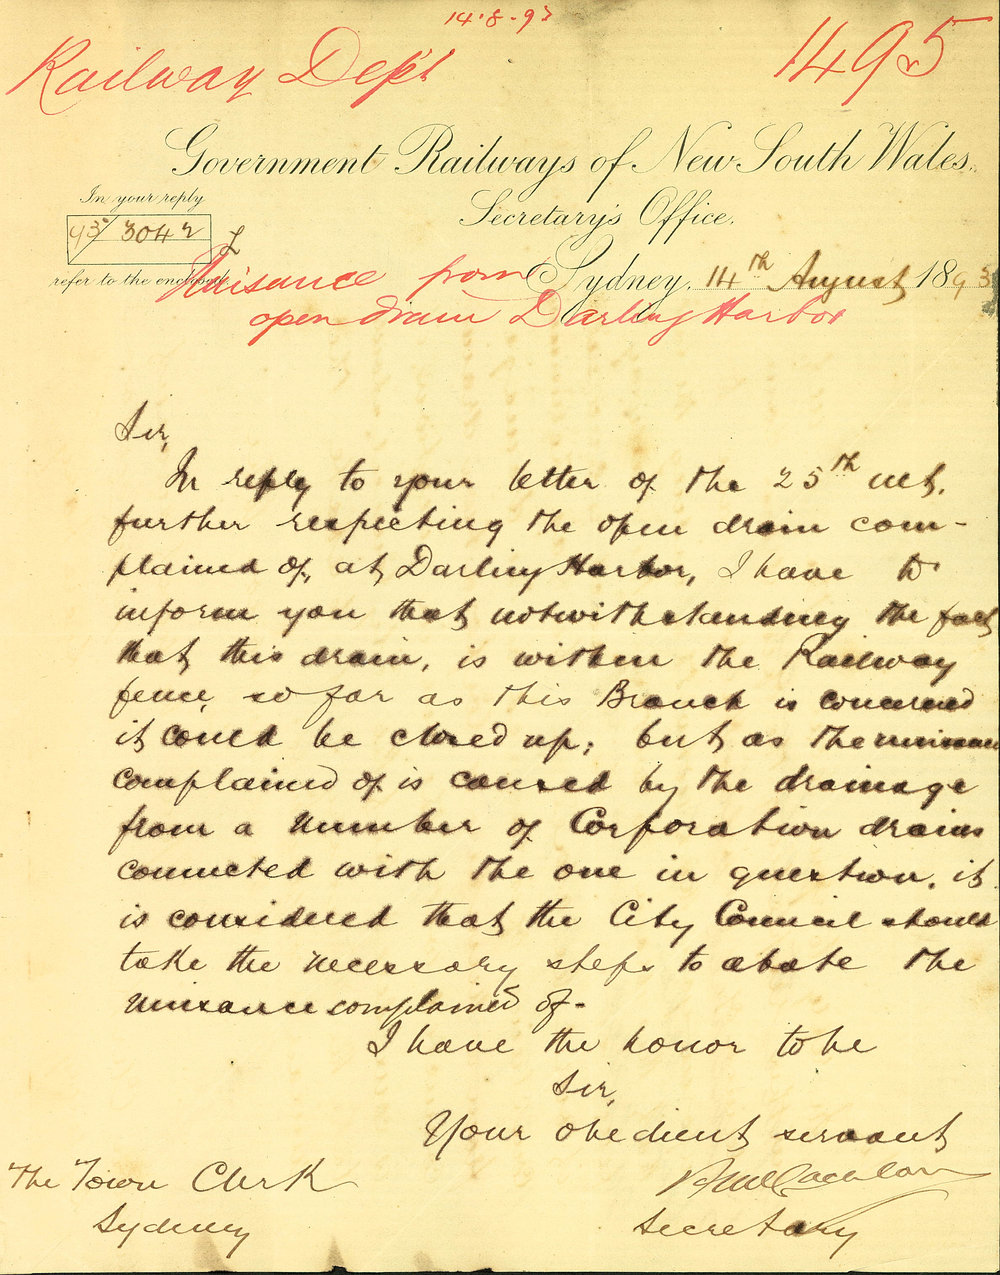 14.8.93
Railway Dep't
1495
Government Railways of New South Wales.
Secretary's Office.
In your reply
93/3042
refer to the enclosed
Sydney, 14th August 1893
Nuisance from
open drain Darling Harbor
Sir,
In reply to your letter of the 25th ult,
further respecting the open drain com-
plained of, at Darling Harbor, I have to
inform you that notwithstanding the fact
that this drain, is within the Railway
fence, so far as this Branch is concerned
it could be closed up; but as the nuisance
complained of is caused by the drainage
from a number of Corporation drains
connected with the one in question, it
is considered that the City Council should
take the necessary steps to abate the
nuisance complained of.
I have the honor to be
Sir,
Your obedient servant
The Town Clerk
Sydney
McLachlan
Secretary